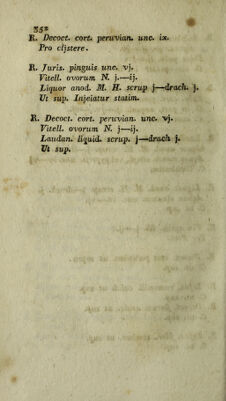 352
R. Decoct. cort. peruvian. unc. ix.
Pro clystere.
R. Juris. pinguis unc. vj.
Vitell. ovorum N. j.—ij.
Liquor anod. M. H. scrup j—drach. j.
Ut sup. Injeiatur statim.
R. Decoct. cort. peruvian. unc. vj.
Vitell. ovorum N. j—ij.
Laudan. liquid. scrup. j—drach j.
Ut sup.